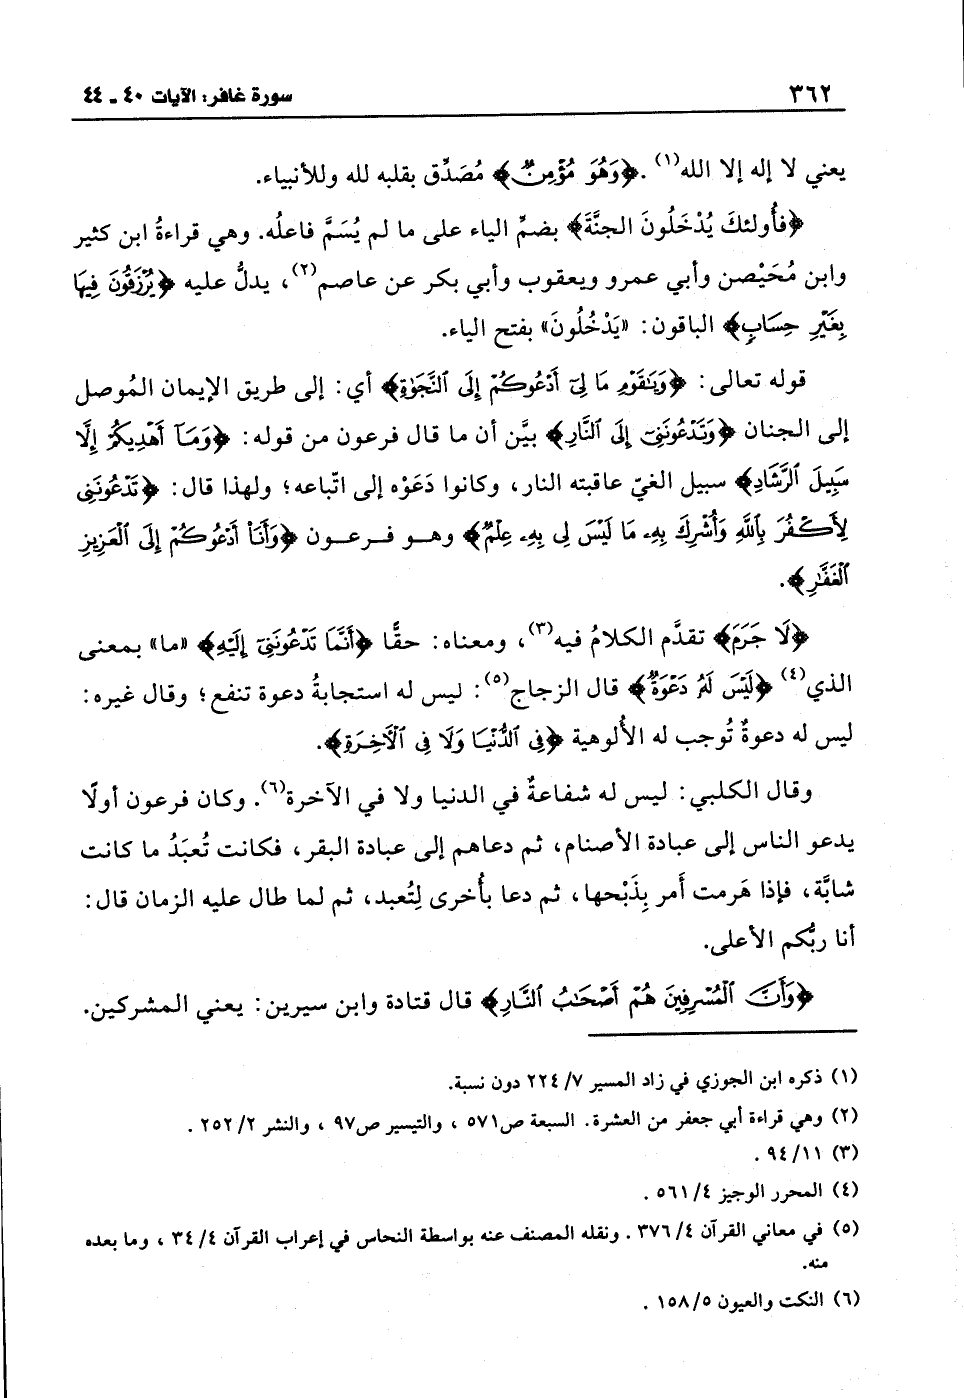 ٣٦٢
سورة غافر: الآيات ٤٠ ـ ٤٤
يعني لا إله إلا الله(١). ﴿وَهُوَ مُؤْمِنٌ﴾ مُصَدِّق بقلبه لله وللأنبياء.
﴿فأُولئكَ يُدْخَلُونَ الجنَّةَ﴾ بضمِّ الياء على ما لم يُسَمَّ فاعلُه. وهي قراءةُ ابن كثير
وابن مُحَيْصن وأبي عمرو ويعقوب وأبي بكر عن عاصم(٢)، يدلُّ عليه ﴿يُرْزَقُونَ فِيهَا
بِغَيْرِ حِسَابٍ﴾ الباقون: «يَدْخُلُونَ» بفتح الياء.
قوله تعالى: ﴿وَيَٰقَوْمِ مَا لِىٓ أَدْعُوكُمْ إِلَى ٱلنَّجَوٰةِ﴾ أي: إلى طريق الإيمان المُوصل
إلى الجنان ﴿وَتَدْعُونَنِىٓ إِلَى ٱلنَّارِ﴾ بيَّن أن ما قال فرعون من قوله: ﴿وَمَآ أَهْدِيكُمْ إِلَّا
سَبِيلَ ٱلرَّشَادِ﴾ سبيل الغيّ عاقبته النار، وكانوا دَعَوْه إلى اتّباعه؛ ولهذا قال: ﴿تَدْعُونَنِى
لِأَكْفُرَ بِٱللَّهِ وَأُشْرِكَ بِهِۦ مَا لَيْسَ لِى بِهِۦ عِلْمٌ﴾ وهـو فـرعـون ﴿وَأَنَا۠ أَدْعُوكُمْ إِلَى ٱلْعَزِيزِ
ٱلْغَفَّٰرِ﴾.
﴿لَا جَرَمَ﴾ تقدَّم الكلامُ فيه(٣)، ومعناه: حقًّا ﴿أَنَّمَا تَدْعُونَنِىٓ إِلَيْهِ﴾ «ما» بمعنى
الذي(٤) ﴿لَيْسَ لَهُۥ دَعْوَةٌ﴾ قال الزجاج(٥): ليس له استجابةُ دعوة تنفع؛ وقال غيره:
ليس له دعوةٌ تُوجب له الأُلوهية ﴿فِى ٱلدُّنْيَا وَلَا فِى ٱلْأَخِرَةِ﴾.
وقال الكلبي: ليس له شفاعةٌ في الدنيا ولا في الآخرة(٦). وكان فرعون أولًا
يدعو الناس إلى عبادة الأصنام، ثم دعاهم إلى عبادة البقر، فكانت تُعبَدُ ما كانت
شابَّة، فإذا هَرمت أَمر بِذَبْحها، ثم دعا بأُخرى لِتُعبد، ثم لما طال عليه الزمان قال:
أنا ربُّكم الأعلى.
﴿وَأَنَّ ٱلْمُسْرِفِينَ هُمْ أَصْحَٰبُ ٱلنَّارِ﴾ قال قتادة وابن سيرين: يعني المشركين.
(١) ذكره ابن الجوزي في زاد المسير ٧/ ٢٢٤ دون نسبة.
(٢) وهي قراءة أبي جعفر من العشرة. السبعة ص٥٧١ ، والتيسير ص٩٧ ، والنشر ٢/ ٢٥٢ .
(٣) ١١/ ٩٤ .
(٤) المحرر الوجيز ٤/ ٥٦١ .
(٥) في معاني القرآن ٤/ ٣٧٦ . ونقله المصنف عنه بواسطة النحاس في إعراب القرآن ٤/ ٣٤ ، وما بعده
منه.
(٦) النكت والعيون ٥/ ١٥٨ .